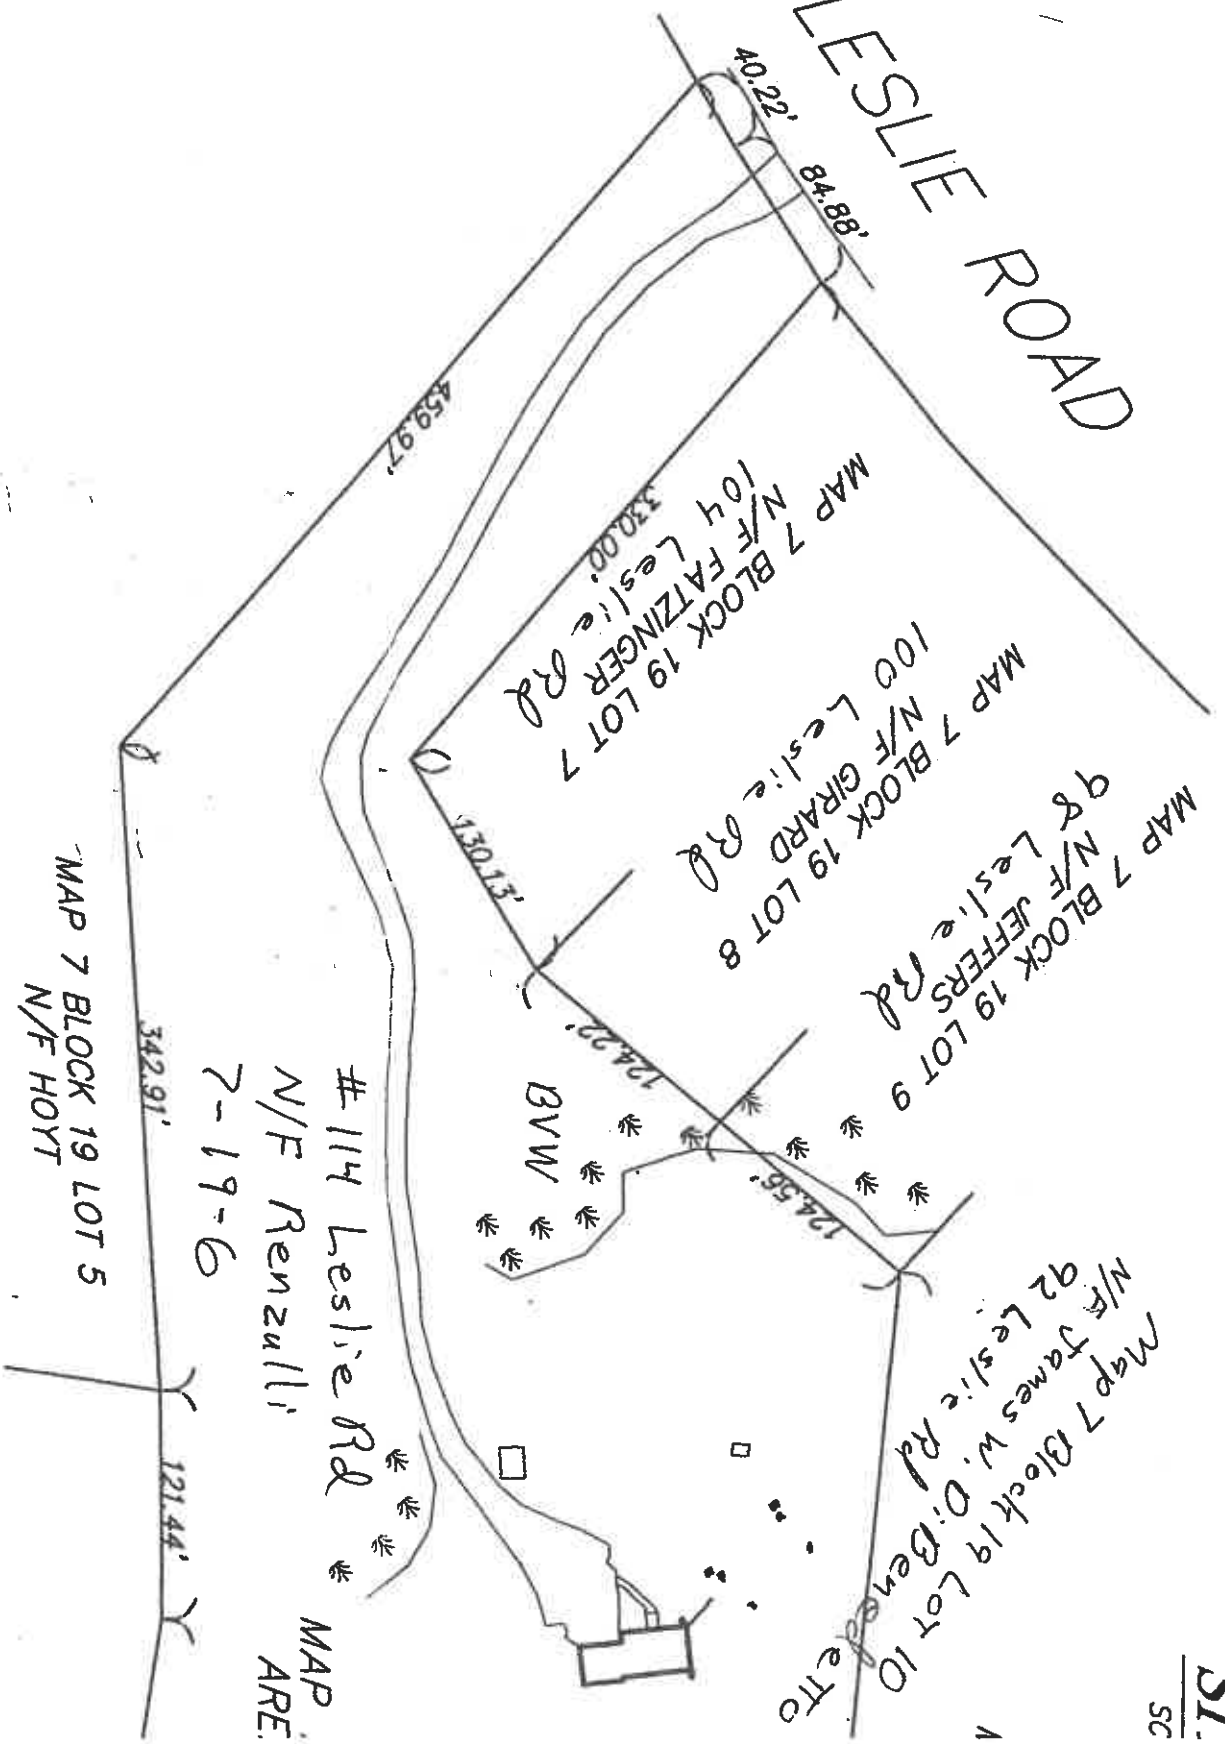 LESLIE ROAD
40.22'
84.88'
459.97'
330.00'
MAP 7 BLOCK 19 LOT 7
N/F FATZINGER
104 Leslie Rd
MAP 7 BLOCK 19 LOT 8
N/F GIRARD
100 Leslie Rd
MAP 7 BLOCK 19 LOT 9
N/F JEFFERS
98 Leslie Rd
130.13'
124.22'
124.56'
BVW
Map 7 Block 19 LOT 10
N/F James W. DiBenedetto
92 Leslie Rd
# 114 Leslie Rd
N/F Renzulli
7-19-6
342.91'
MAP 7 BLOCK 19 LOT 5
N/F HOYT
121.44'
MAP
ARE
SI
SC